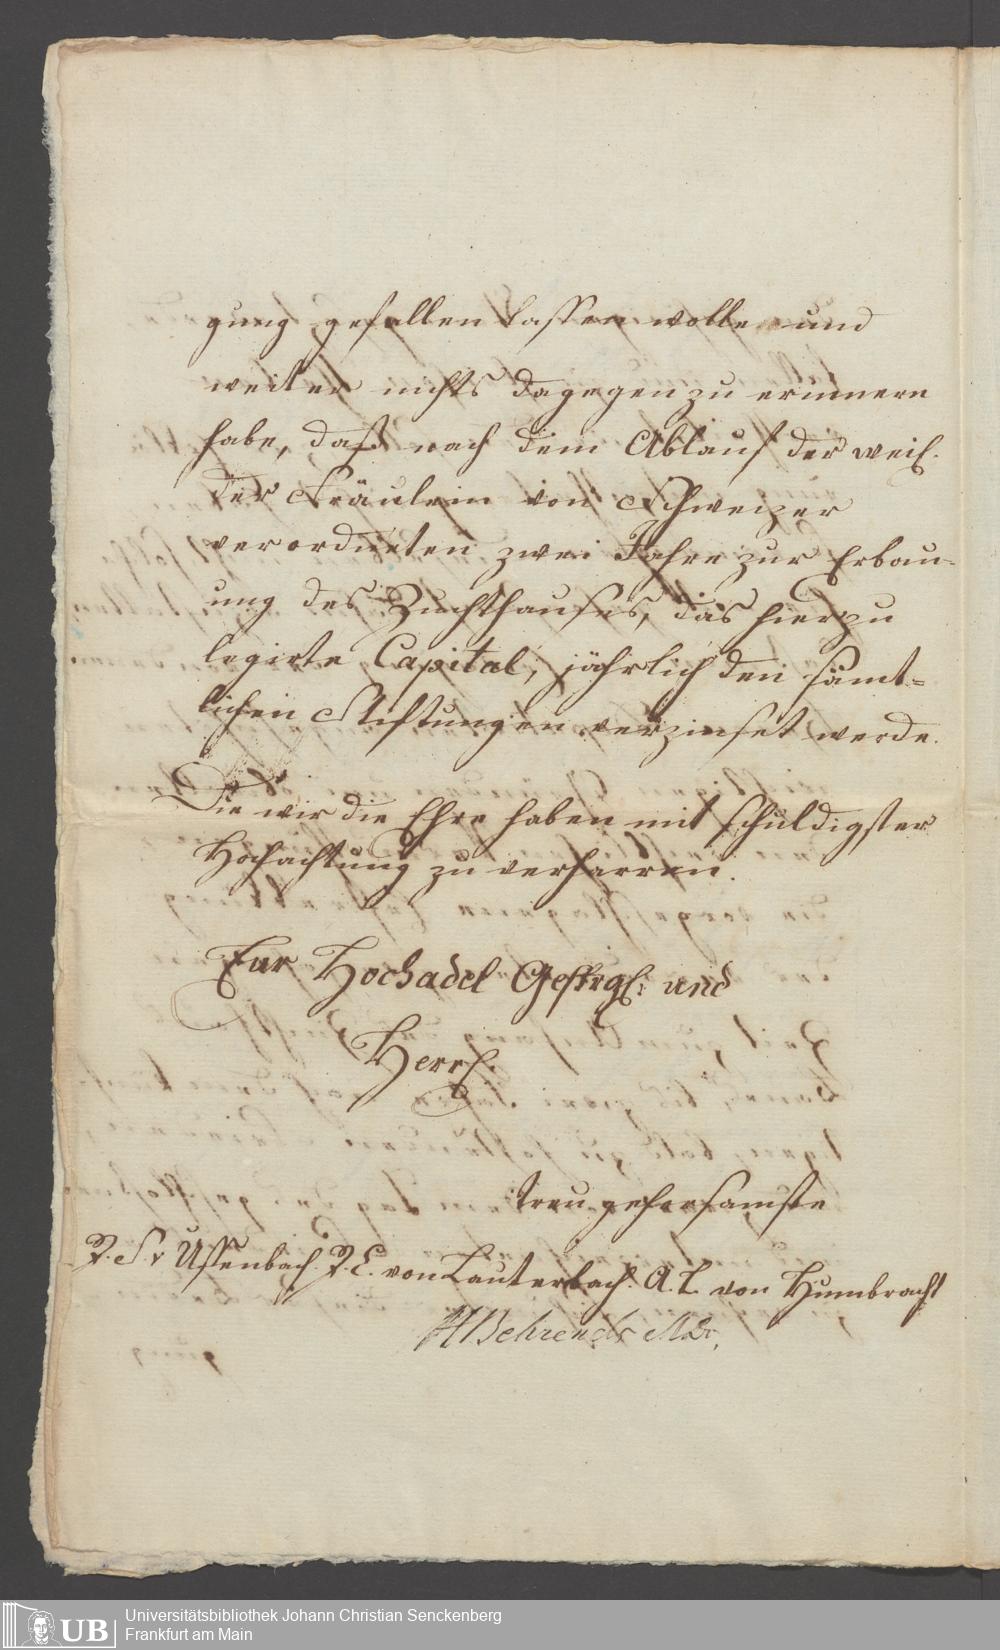 gung gefallen lassen wolle und
weiter nichts dagegen zu erinnern
habe, daß nach dem Ablauf der weil.
der Fräulein von Schweizer
verordneten zwei Jahre zur Erbau-
ung des Zuchthauses, das hierzu
legirte Capital, jährlich den sämt=
lichen Stiftungen verzinset werde.
Die wir die Ehre haben mit schuldigster
Hochachtung zu verharren.
Eur Hochadel Gestrgl: und
Herrl.
treu gehorsamste
v Uffenbach. von Lauterbach. A. L. von Humbracht
Behrends MDr,
Universitätsbibliothek Johann Christian Senckenberg
UB Frankfurt am Main